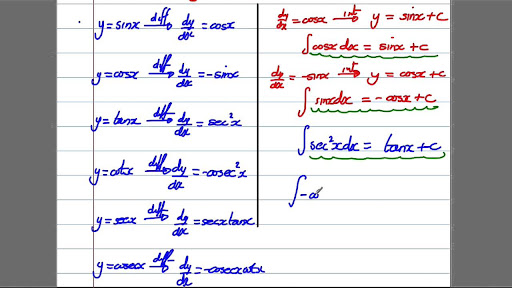 y=sinx diff→ dy/dx = cosx
y=cosx diff→ dy/dx = -sinx
y=tanx diff→ dy/dx = sec²x
y=cotx diff→ dy/dx = -cosec²x
y=secx diff→ dy/dx = secxtanx
y=cosecx diff→ dy/dx = -cosecxcotx
dy/dx = cosx int→ y = sinx+c
∫cosxdx = sinx+c
dy/dx = -sinx int→ y = cosx+c
∫sinxdx = -cosx+c
∫sec²xdx = tanx+c
∫-co